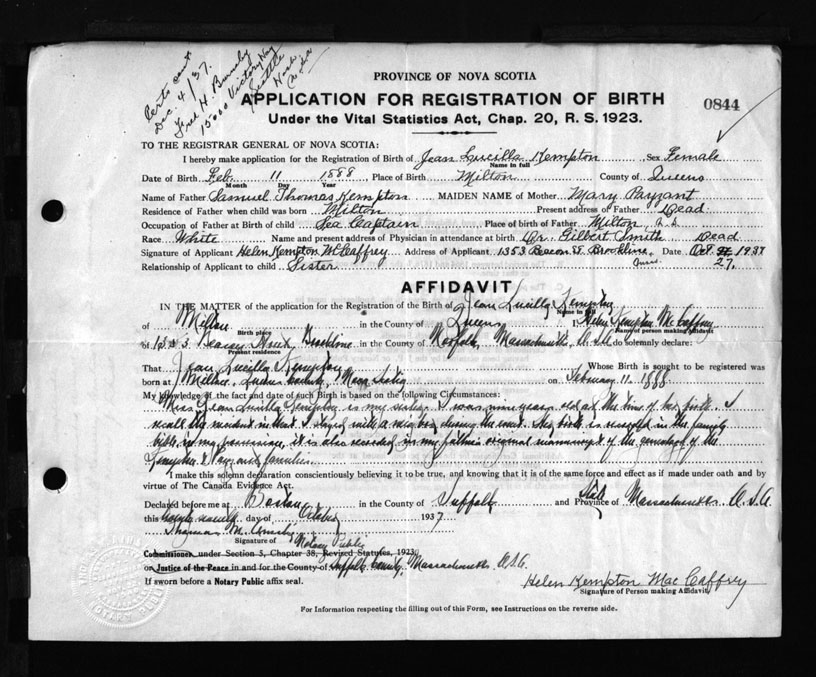 Certs sent
Dec 4/37.
Fred H. Burnaby
15000 Victory Way
Seattle
PROVINCE OF NOVA SCOTIA
APPLICATION FOR REGISTRATION OF BIRTH
0844
Under the Vital Statistics Act, Chap. 20, R. S. 1923.
TO THE REGISTRAR GENERAL OF NOVA SCOTIA:
I hereby make application for the Registration of Birth of Jean Lucilla Kempton Sex Female
Name in full
Date of Birth Feb 11 1888 Place of Birth Milton County of Queens
Month Day Year
Name of Father Samuel Thomas Kempton MAIDEN NAME of Mother Mary Payzant
Residence of Father when child was born Milton Present address of Father Dead
Occupation of Father at Birth of child Sea Captain Place of birth of Father Milton
Race White Name and present address of Physician in attendance at birth Dr. Gilbert Smith Dead
Signature of Applicant Helen Kempton McCaffrey Address of Applicant 1353 Beacon St Brookline Date Oct 1937
Mass. 27,
Relationship of Applicant to child Sister
AFFIDAVIT
IN THE MATTER of the application for the Registration of the Birth of Jean Lucilla Kempton
Name in full
of Milton in the County of Queens I, Helen Kempton McCaffrey
Birth place Name of person making Affidavit
of 1353 Beacon Street Brookline in the County of Norfolk, Massachusetts, U.S.A. do solemnly declare:
Present residence
That Jean Lucilla Kempton Whose Birth is sought to be registered was
born at Milton, Queens County, Nova Scotia on February 11, 1888.
My knowledge of the fact and date of such Birth is based on the following Circumstances:
Miss Jean Lucilla Kempton is my sister. I was nine years old at the time of her birth. I
recall the incident in that I stayed with a neighbor during the event. Her birth is recorded in the family
bible in my possession, it is also recorded in my father's original manuscript of the genealogy of the
Kempton & Payzant families.
I make this solemn declaration conscientiously believing it to be true, and knowing that it is of the same force and effect as if made under oath and by
virtue of The Canada Evidence Act.
Declared before me at Boston in the County of Suffolk and State Province of Massachusetts U.S.A.
this twenty seventh day of October 1937
Thomas M.
Signature of Notary Public
Commissioner, under Section 5, Chapter 38, Revised Statutes, 1923,
or Justice of the Peace in and for the County of Suffolk County, Massachusetts U.S.A.
If sworn before a Notary Public affix seal.
Helen Kempton MacCaffrey
Signature of Person making Affidavit
For Information respecting the filling out of this Form, see Instructions on the reverse side.